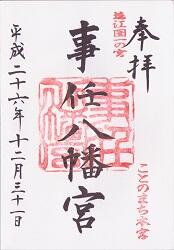 奉拝
遠江国一の宮
事任八幡宮
ことのまち本宮
平成二十六年十二月三十一日